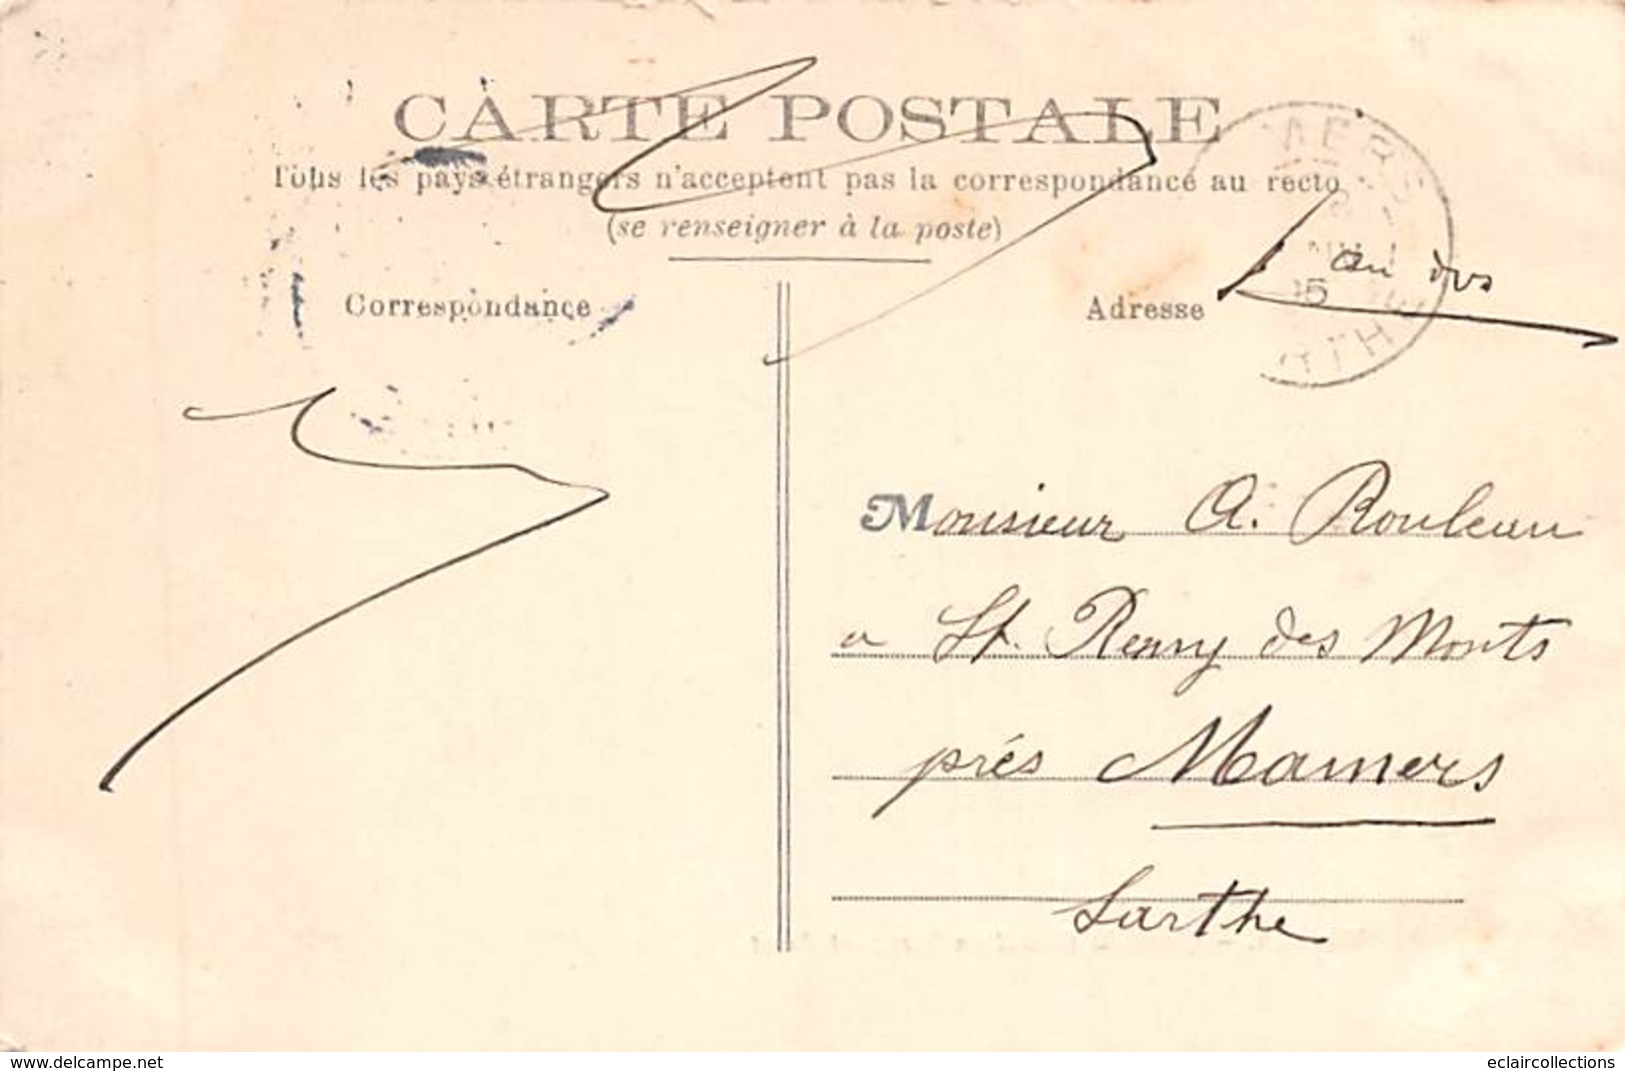 CARTE POSTALE
Tous les pays étrangers n'acceptent pas la correspondance au recto
(se renseigner à la poste)
Correspondance
Adresse
au dos
Monsieur A. Rouleau
a St. Remy des Monts
prés Mamers
Sarthe
www.delcampe.net
eclaircollections